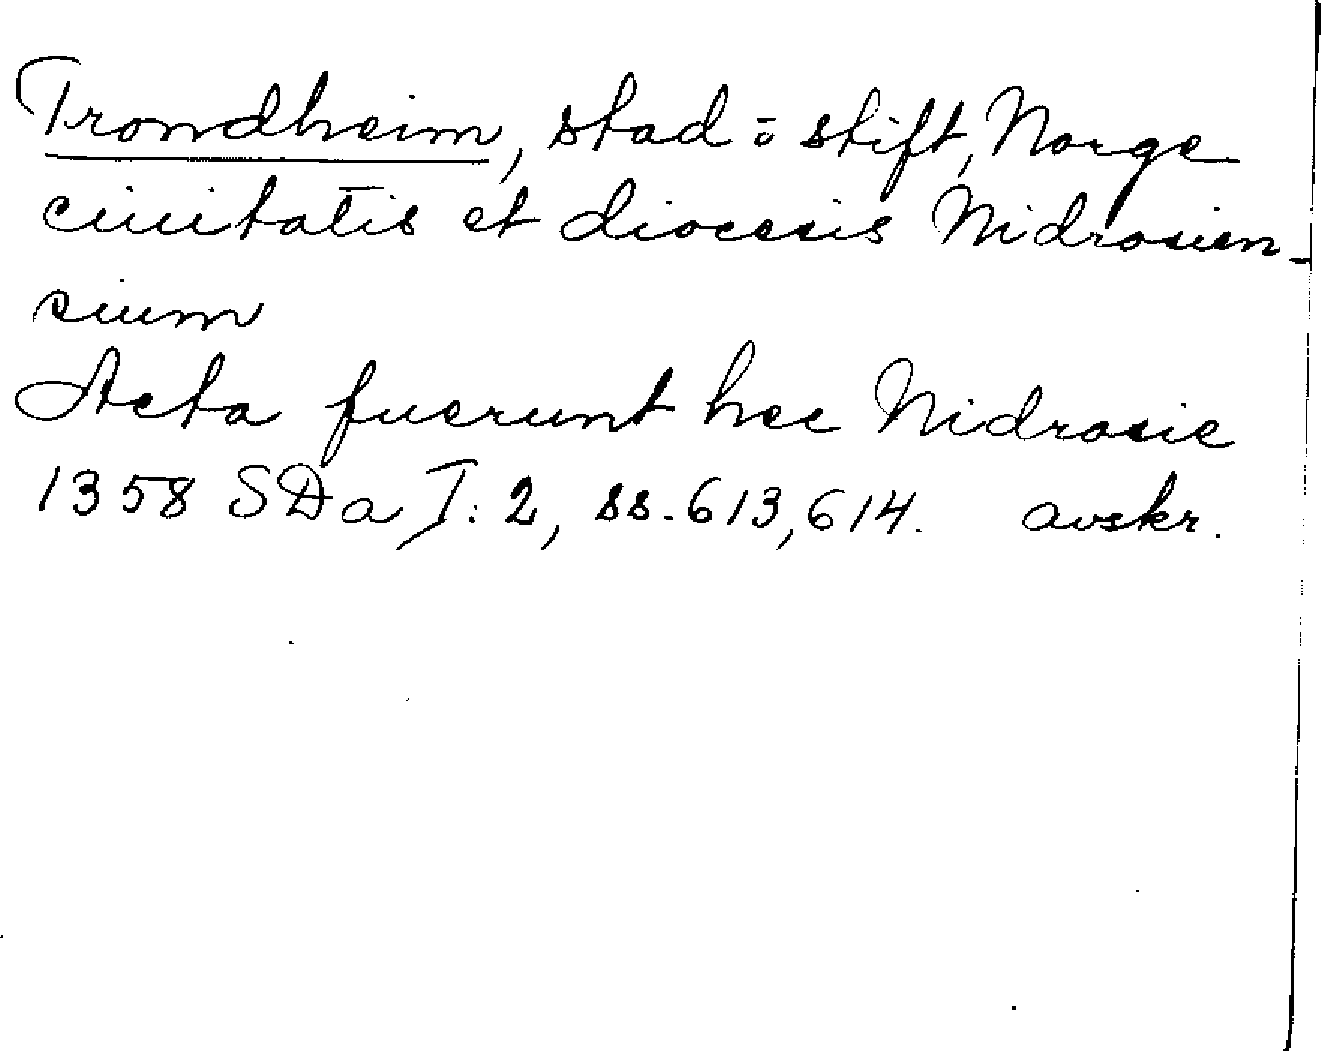 Trondheim, stad o stift, Norge
ciuitatis et diocesis Nidrosien-
sium
Acta fuerunt hec Nidrosie
1358 SDa I:2, ss.613,614. avskr.